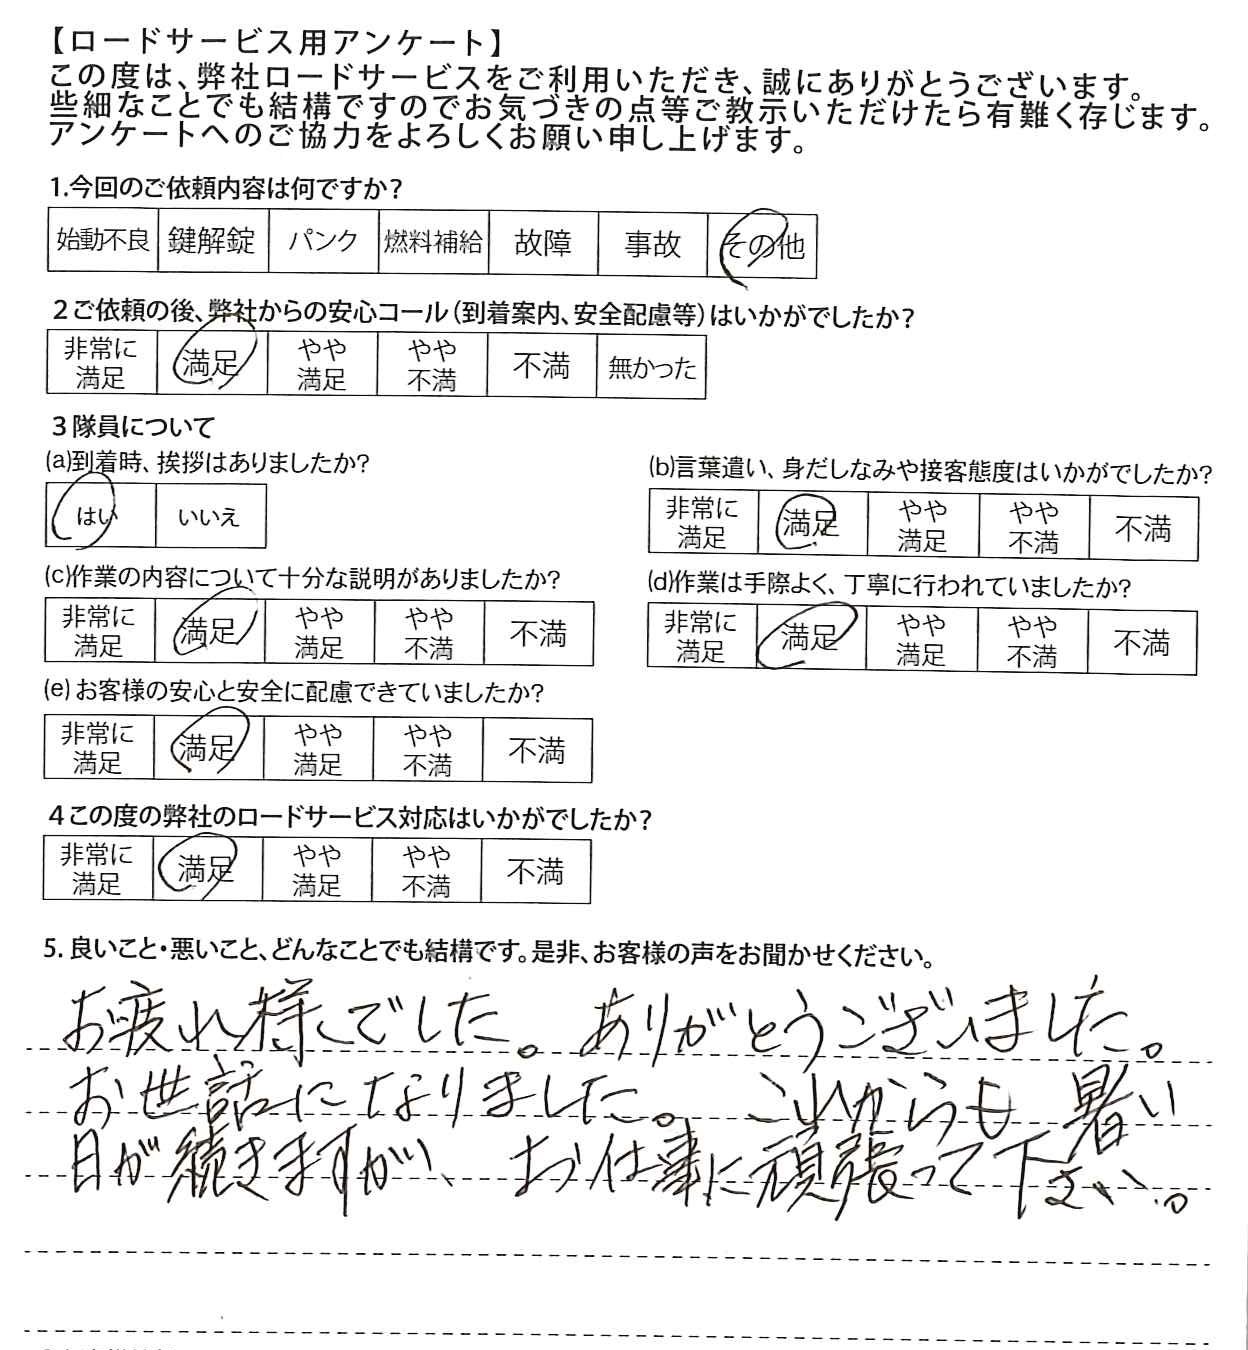 【ロードサービス用アンケート】
この度は、弊社ロードサービスをご利用いただき、誠にありがとうございます。
些細なことでも結構ですのでお気づきの点等ご教示いただけたら有難く存じます。
アンケートへのご協力をよろしくお願い申し上げます。
1.今回のご依頼内容は何ですか?
始動不良 鍵解錠 パンク 燃料補給 故障 事故 その他
2ご依頼の後、弊社からの安心コール(到着案内、安全配慮等)はいかがでしたか?
非常に満足 満足 やや満足 やや不満 不満 無かった
3隊員について
(a)到着時、挨拶はありましたか?
はい いいえ
(b)言葉遣い、身だしなみや接客態度はいかがでしたか?
非常に満足 満足 やや満足 やや不満 不満
(c)作業の内容について十分な説明がありましたか?
非常に満足 満足 やや満足 やや不満 不満
(d)作業は手際よく、丁寧に行われていましたか?
非常に満足 満足 やや満足 やや不満 不満
(e)お客様の安心と安全に配慮できていましたか?
非常に満足 満足 やや満足 やや不満 不満
4この度の弊社のロードサービス対応はいかがでしたか?
非常に満足 満足 やや満足 やや不満 不満
5.良いこと・悪いこと、どんなことでも結構です。是非、お客様の声をお聞かせください。
お疲れ様でした。ありがとうございました。
お世話になりました。これからも暑い
日が続きますがい、お仕事に頑張って下さい。